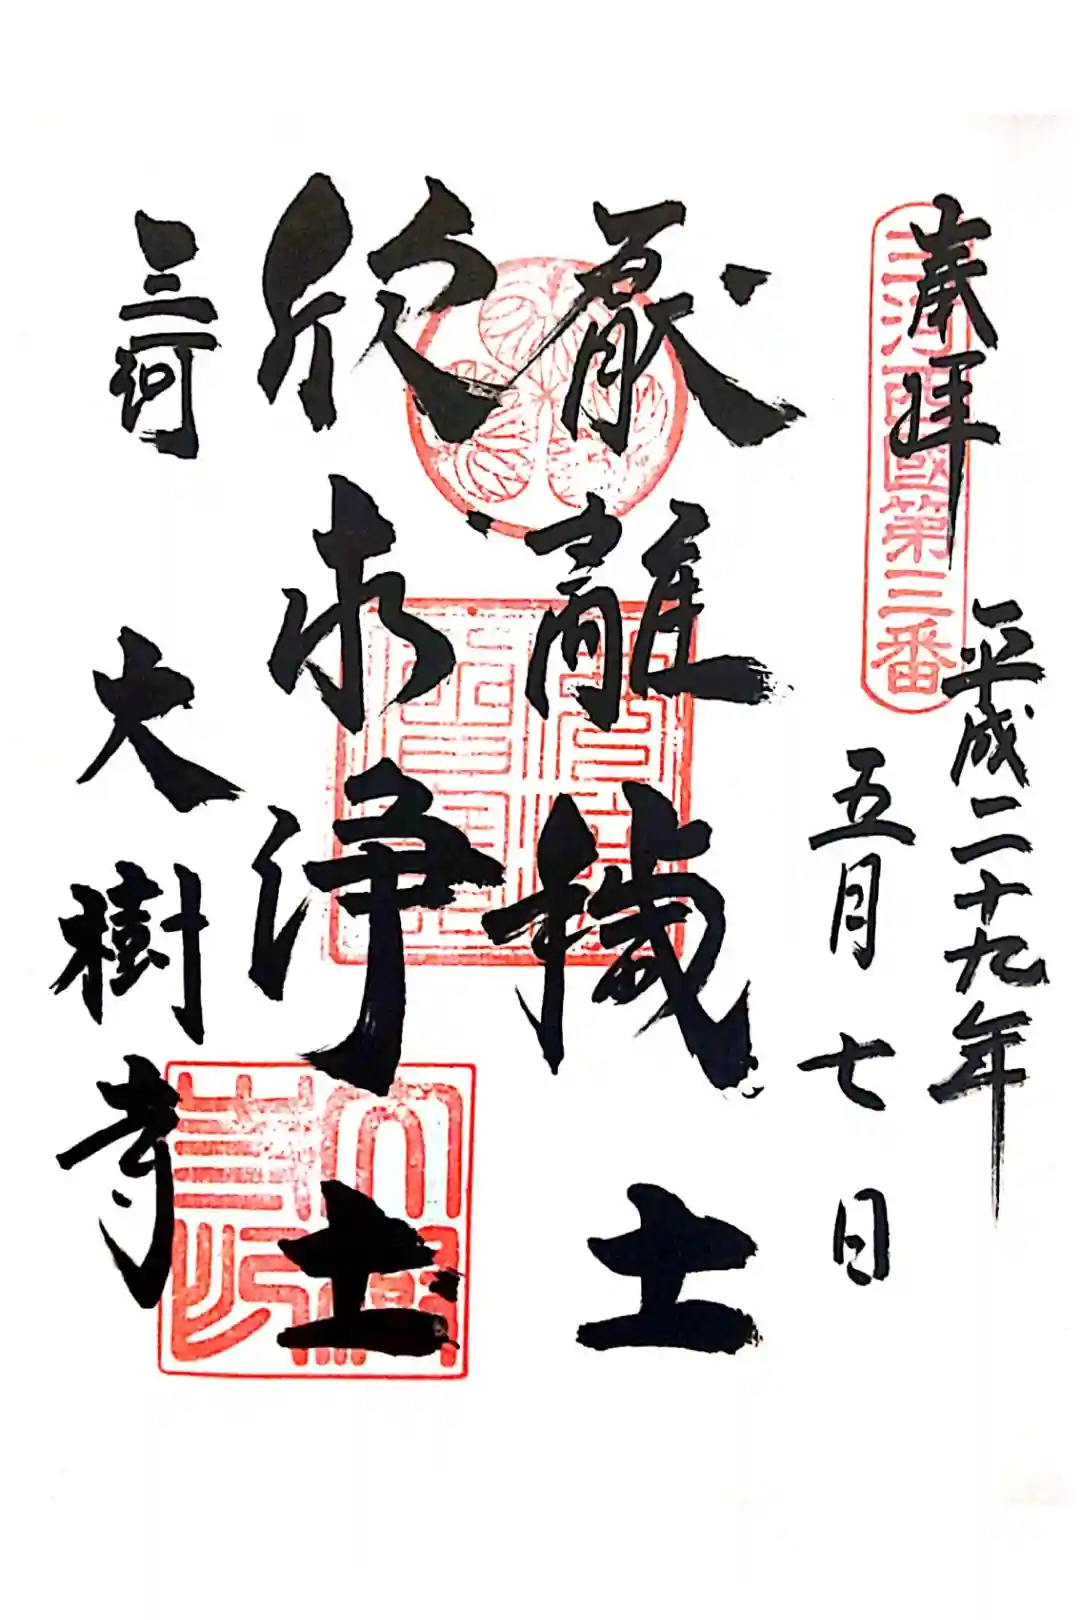 奉拝
三河西國第三番
平成二十九年
五月七日
厭離穢土
欣求浄土
三河
大樹寺